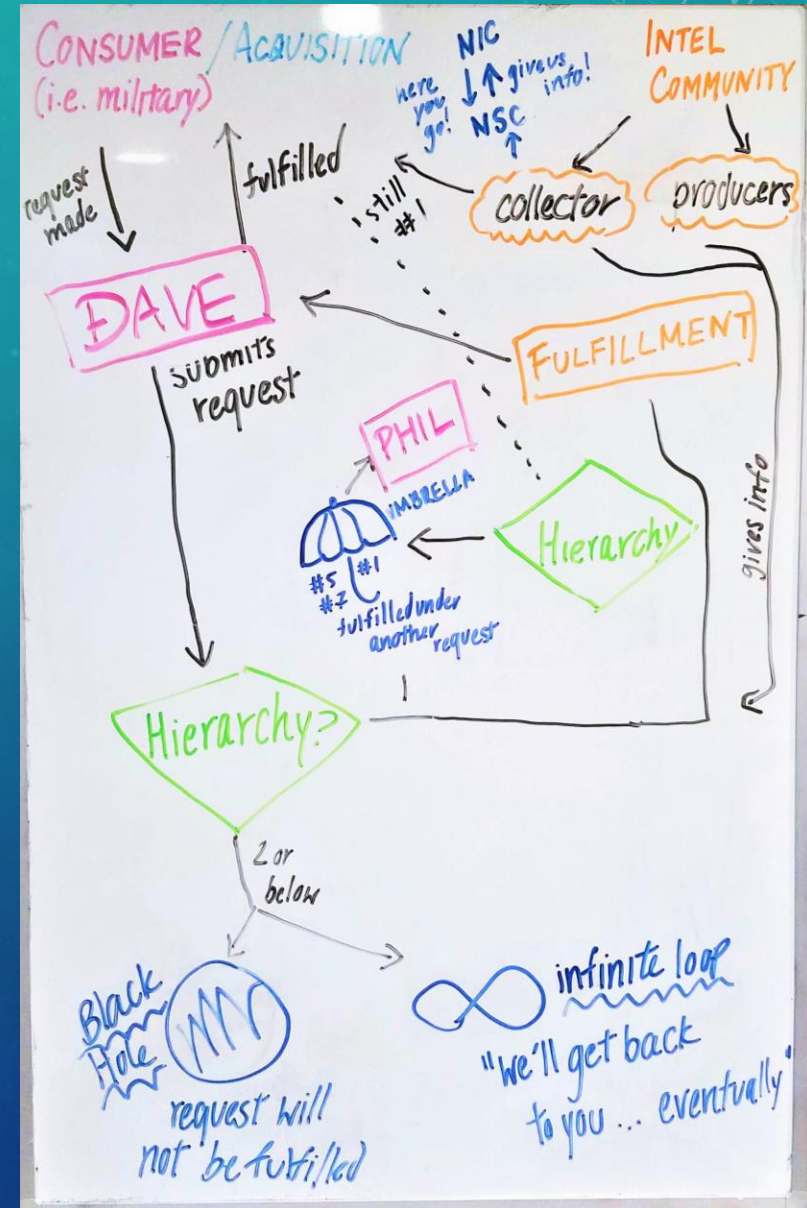 CONSUMER / ACQUISITION
(i.e. military)
NIC
here
you
go!
give us
info!
NSC
INTEL
COMMUNITY
request
made
fulfilled
still
#1
collector
producers
DAVE
submits
request
FULFILLMENT
PHIL
UMBRELLA
#5
#7
#1
fulfilled under
another
request
Hierarchy
gives info
Hierarchy?
1
2 or
below
Black
Hole
request will
not be fulfilled
infinite loop
"we'll get back
to you ... eventually"